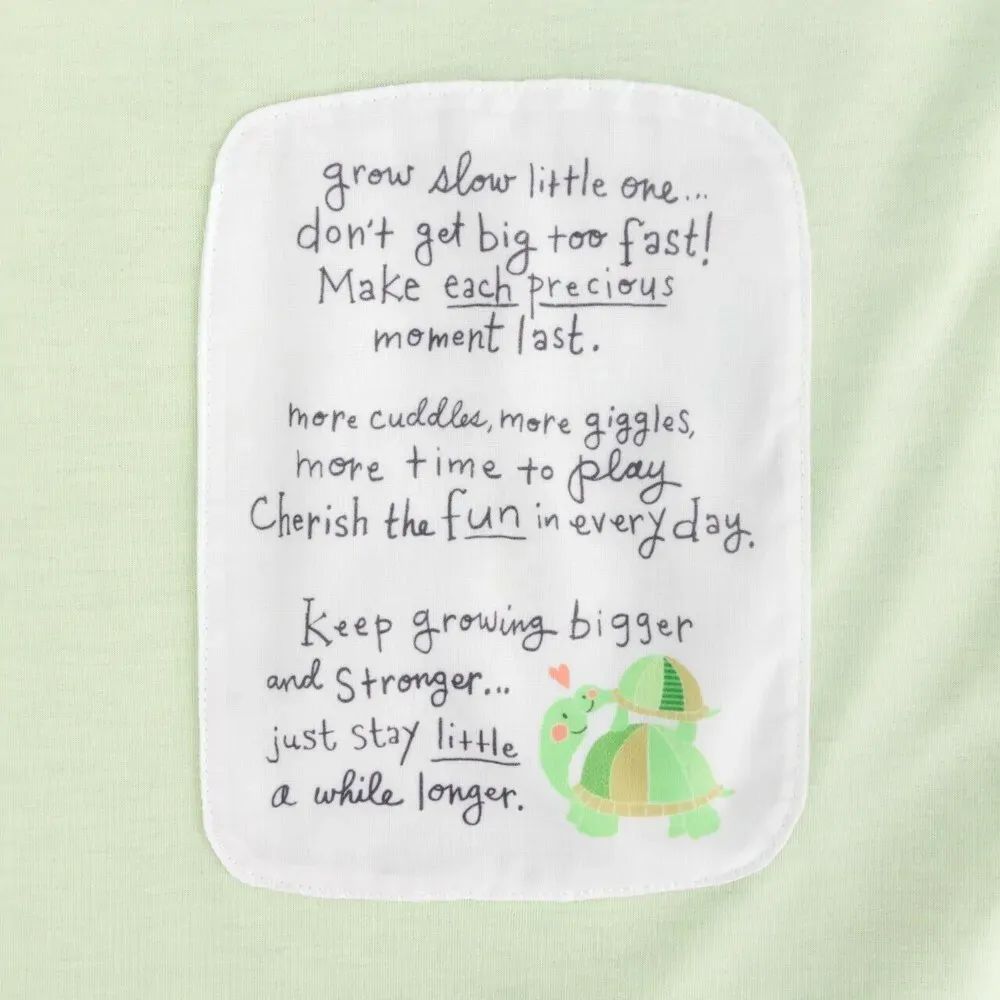 grow slow little one...
don't get big too fast!
Make each precious
moment last.
more cuddles, more giggles,
more time to play
Cherish the fun in every day.
Keep growing bigger
and Stronger...
just stay little
a while longer.